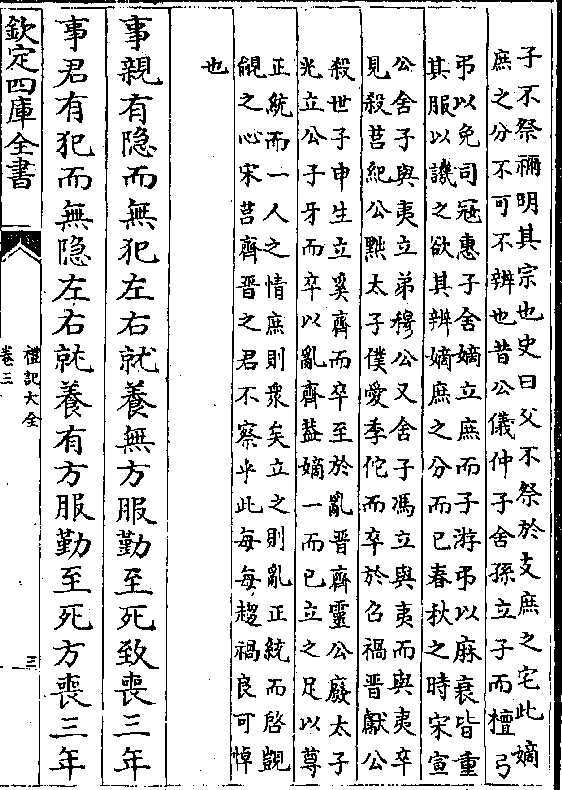 子不祭禰明其宗也史曰父不祭於支庶之宅此嫡
庶之分不可不辨也昔公儀仲子舍孫立子而檀弓
弔以免司寇惠子舍嫡立庶而子游弔以麻衰皆重
其服以譏之欲其辨嫡庶之分而已春秋之時宋宣
公舍子與夷立弟穆公又舍子馮立與夷而與夷卒
見殺莒紀公黜太子僕愛季佗而卒於召禍晉獻公
殺世子申生立奚齊而卒至於亂晉齊靈公廢太子
光立公子牙而卒以亂齊蓋嫡一而已立之足以尊
正統而一人之情庶則衆矣立之則亂正統而啓覬
覦之心宋莒齊晉之君不察乎此每每趨禍良可悼
也
事親有隐而無犯左右就養無方服勤至死致喪三年
事君有犯而無隐左右就養有方服勤至死方喪三年
欽定四庫全書
禮記大全
卷三
三